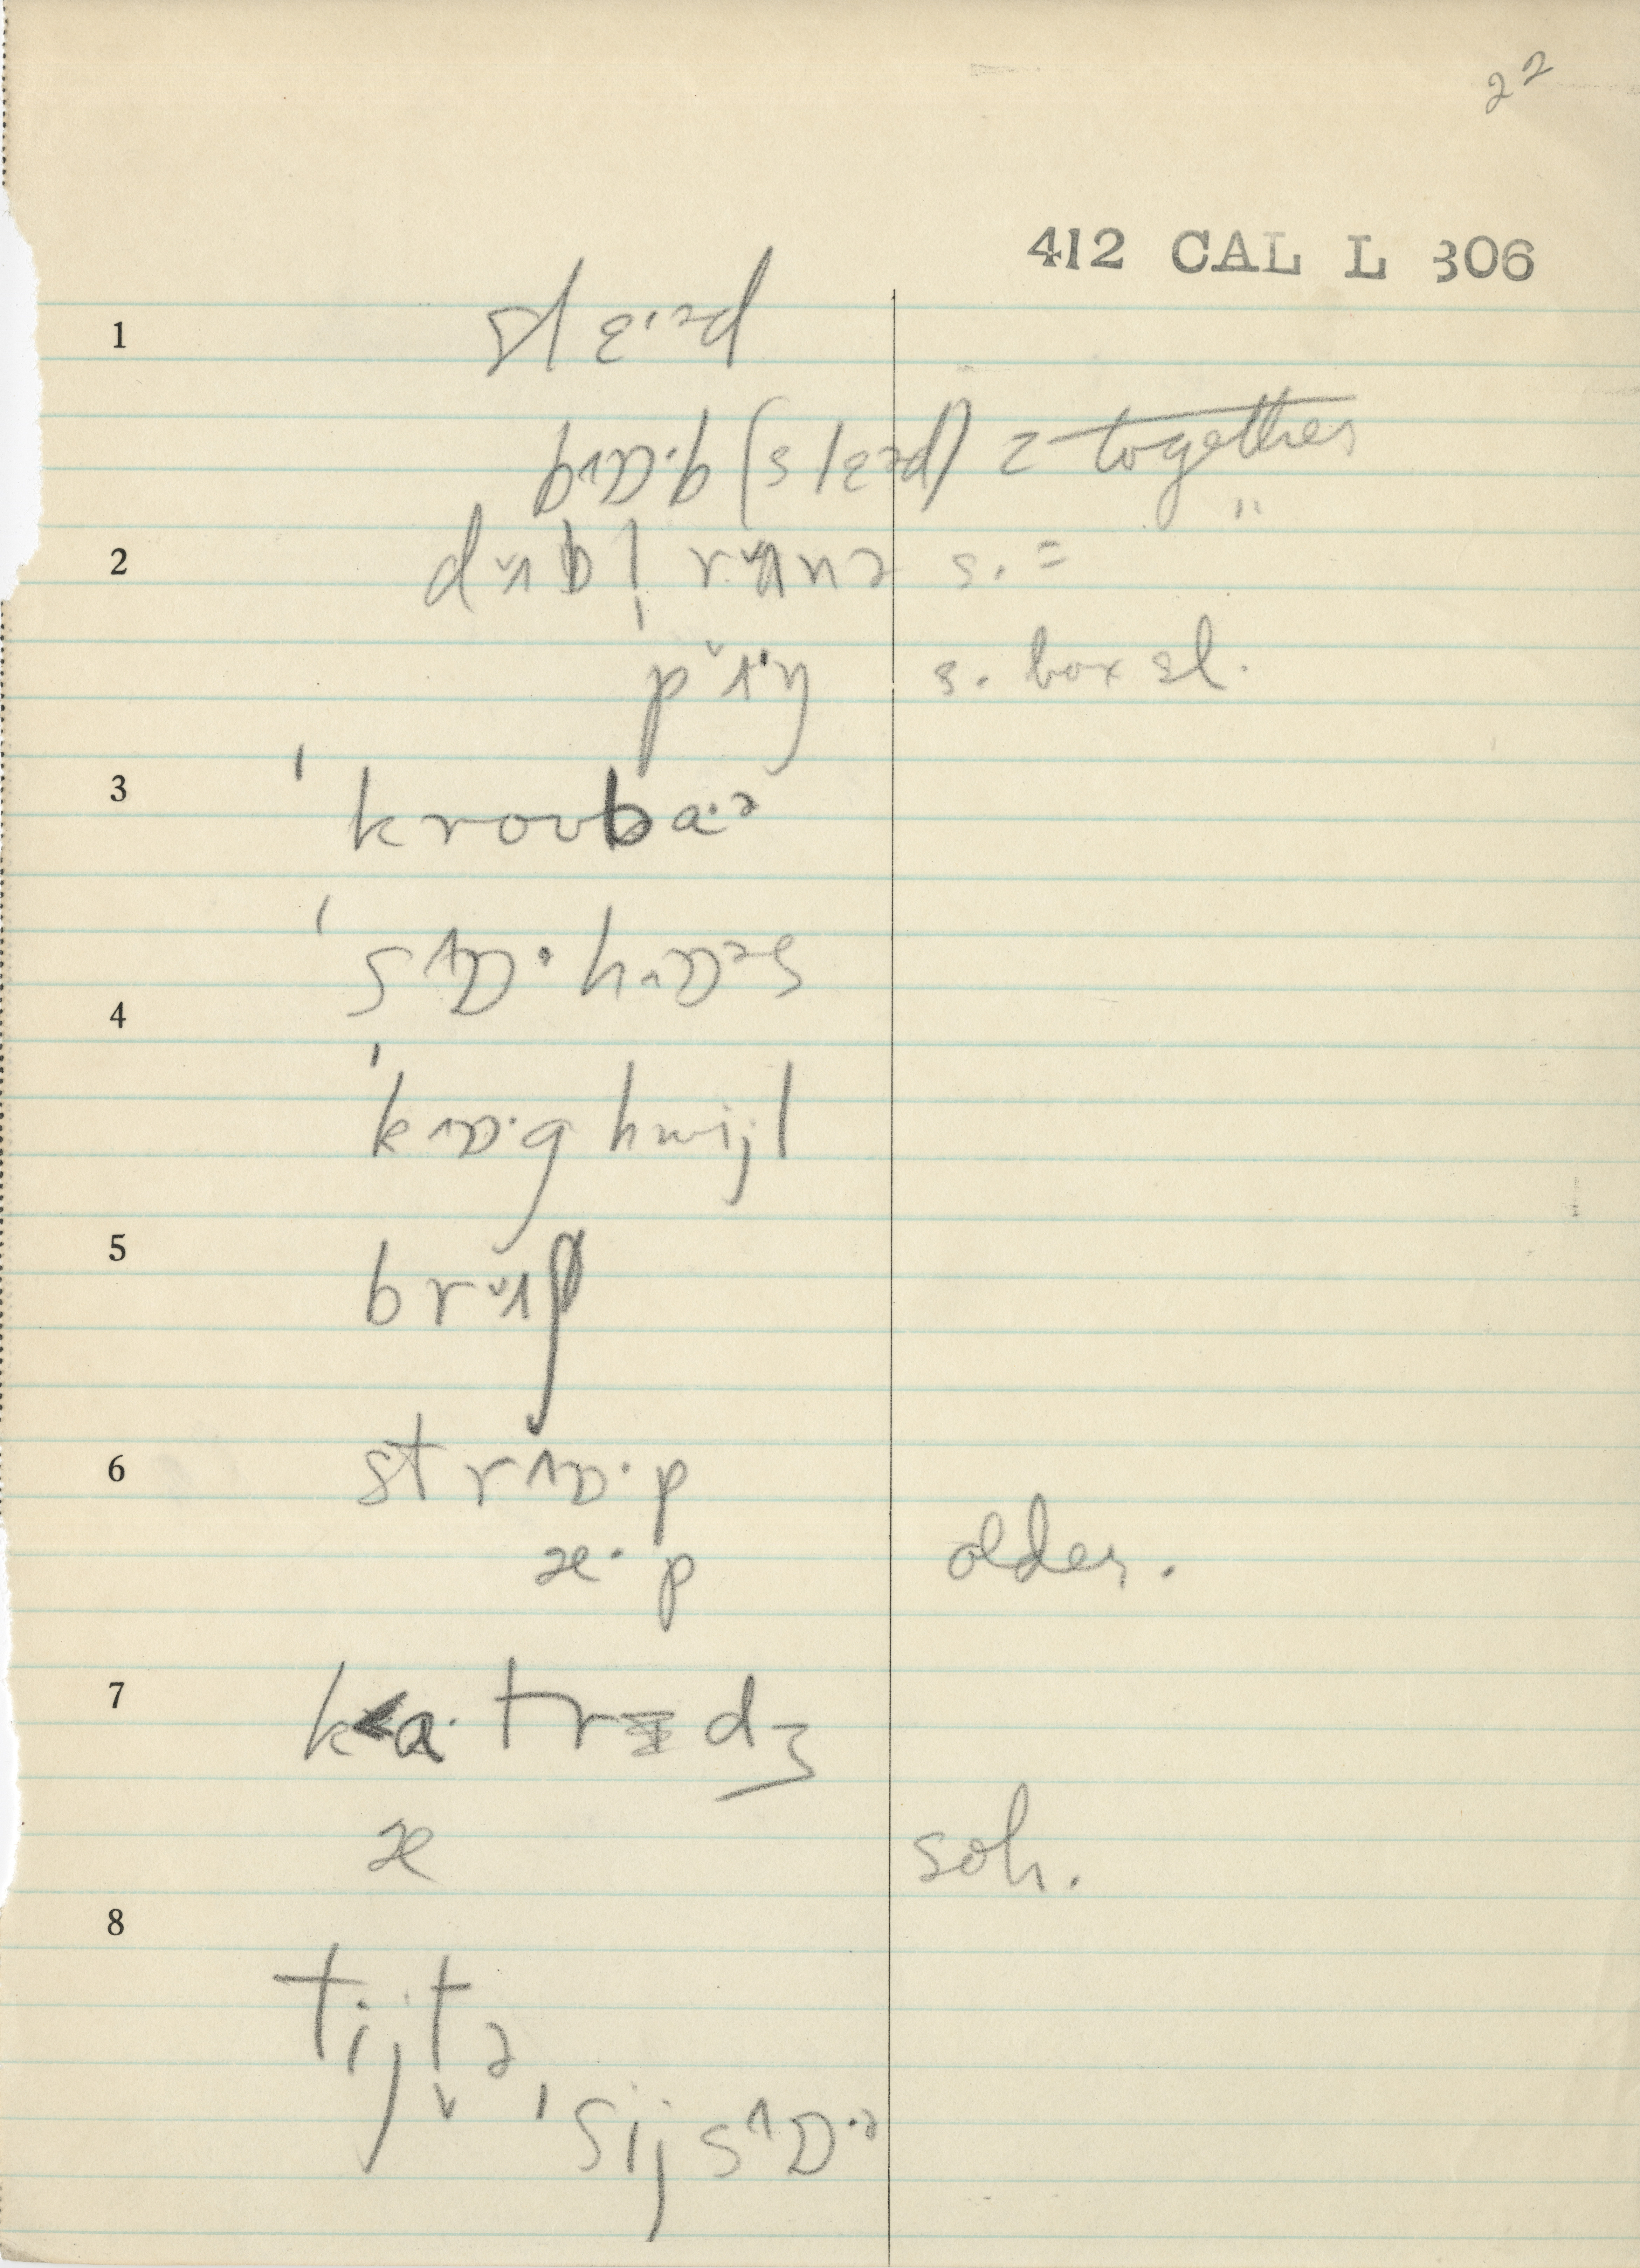 22
412 CAL L 306
1
slɛ·ᵊd
bɒ·b (slɛᵊd) 2 together
"
2 dʌbl̩ rʌnə s. =
pʌŋ s. box sl.
3 ˈkroʊbaːə
ˈsɒ·hɒᵊs
4
ˈkɒ·ghwijl
5
brʌʃ
6 strɒ·p
æ· p older.
7 ka·trɪdʒ
æ soh.
8
tijtə
ˈsijsɒ·ə